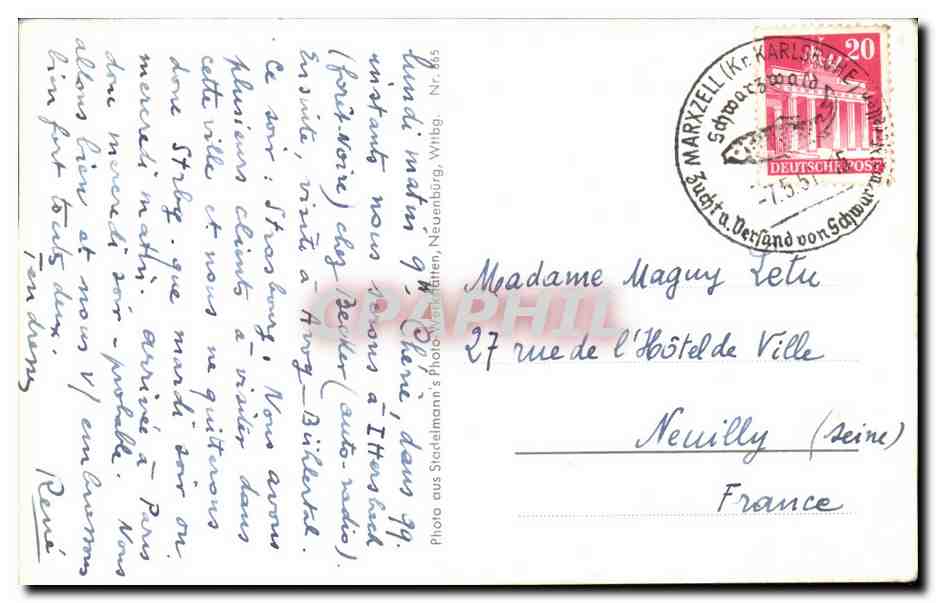 lundi matin 9 h Chérie, dans qq.
instants nous serons à Ittersbach
(forêt Noire) chez Becker (auto-radio).
Ensuite, visite à Bühlertal.
Ce soir : Strasbourg. Nous avons
plusieurs clients à visiter dans
cette ville et nous ne quitterons
donc Strbg. que mardi soir ou
mercredi matin. arrivée à Paris
donc mercredi soir - probable. Nous
allons bien et nous v/ embrassons
bien fort toutes deux.
Tendresses
René
Photo aus Stadelmann's Photo-Werkstätten, Neuenbürg, Wttbg. Nr. 865
CPARAMA
MARXZELL (Kr. KARLSRUHE)
Schwarzwald
-7.5.51
Zucht u. Versand von
20
DEUTSCHE POST
Madame Maguy Letu
27 rue de l'Hôtel de Ville
Neuilly (Seine)
France